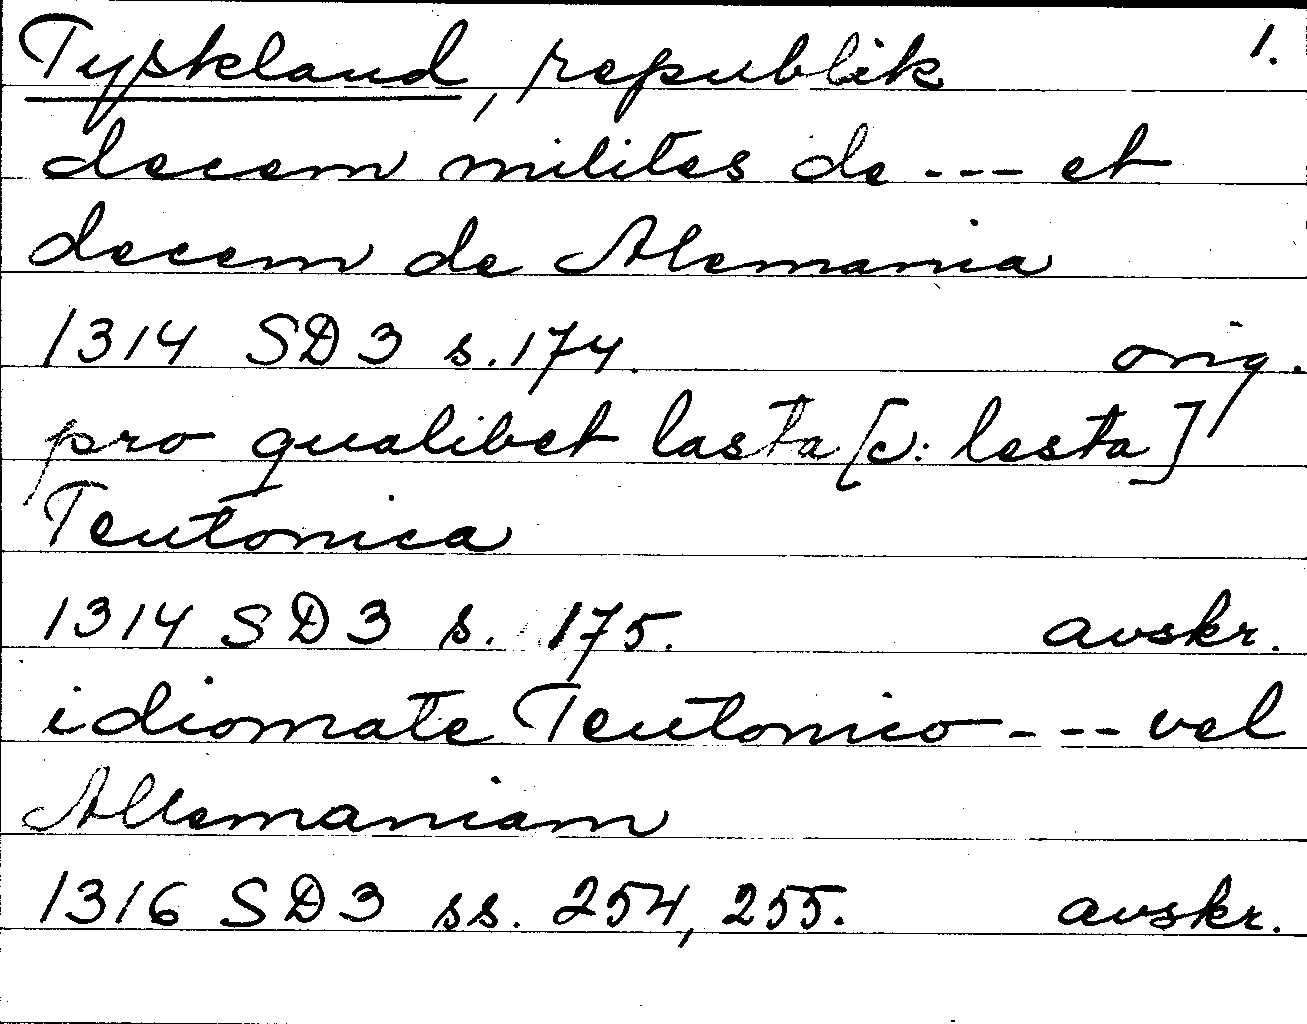 Tyskland, republik 1.
decem milites de --- et
decem de Alemania
1314 SD 3 s. 174. orig.
pro qualibet lasta [ɔ: lesta]
Teutonica
1314 SD 3 s. 175. avskr.
idiomate Teutonico --- vel
Allemaniam
1316 SD 3 ss. 254, 255. avskr.